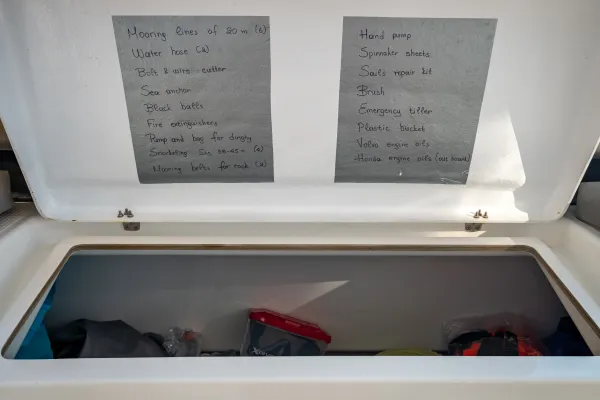 Mooring lines of 20 m. (6)
Water hose (2)
Bolt & wire cutter
Sea anchor
Black balls
Fire extinguishers
Pump and bag for dinghy
Snorkeling
Mooring for rock (2)
Hand pump
Spinnaker sheets
Sails repair kit
Brush
Emergency tiller
Plastic bucket
Volvo engine oils
Honda engine oils (out board)